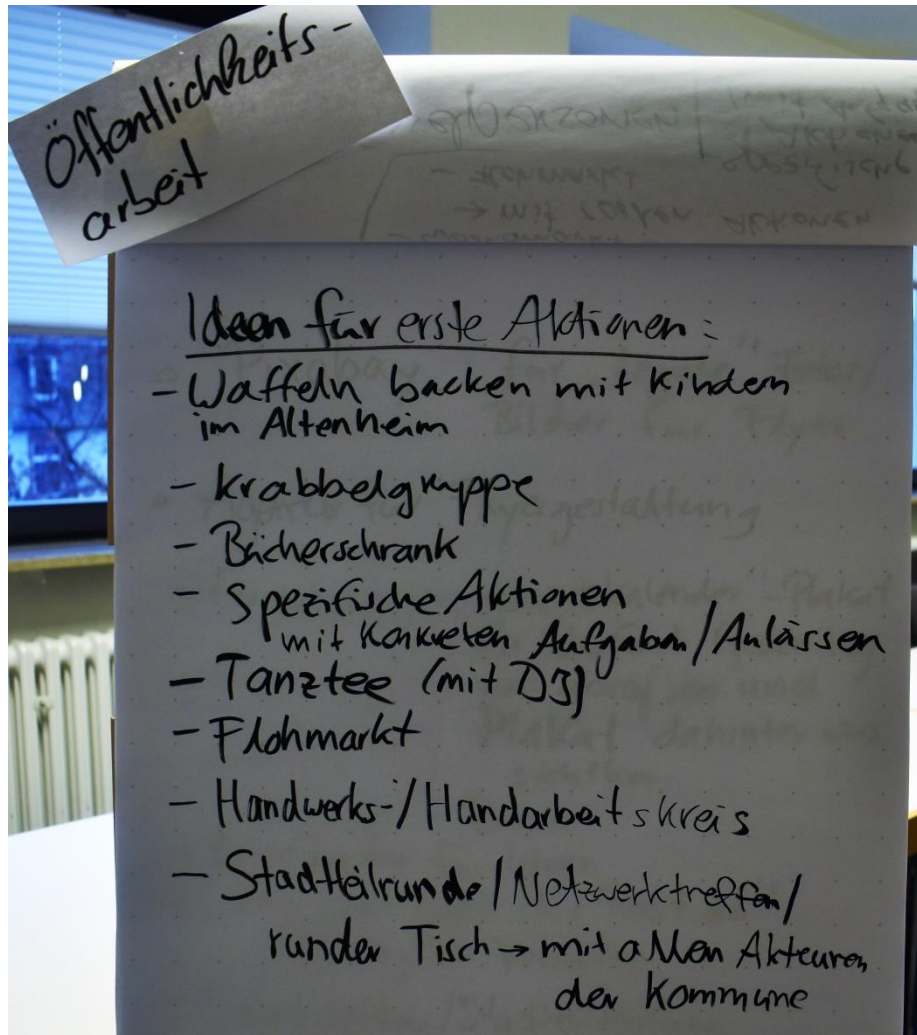 Öffentlichkeits-
arbeit
Ideen für erste Aktionen:
- Waffeln backen mit Kindern
im Altenheim
- Krabbelgruppe
- Bücherschrank
- Spezifische Aktionen
mit Konkreten Aufgaben/Anlässen
- Tanztee (mit DJ)
- Flohmarkt
- Handwerks-/Handarbeitskreis
- Stadtteilrunde/Netzwerktreffen/
runder Tisch → mit allen Akteuren
der Kommune